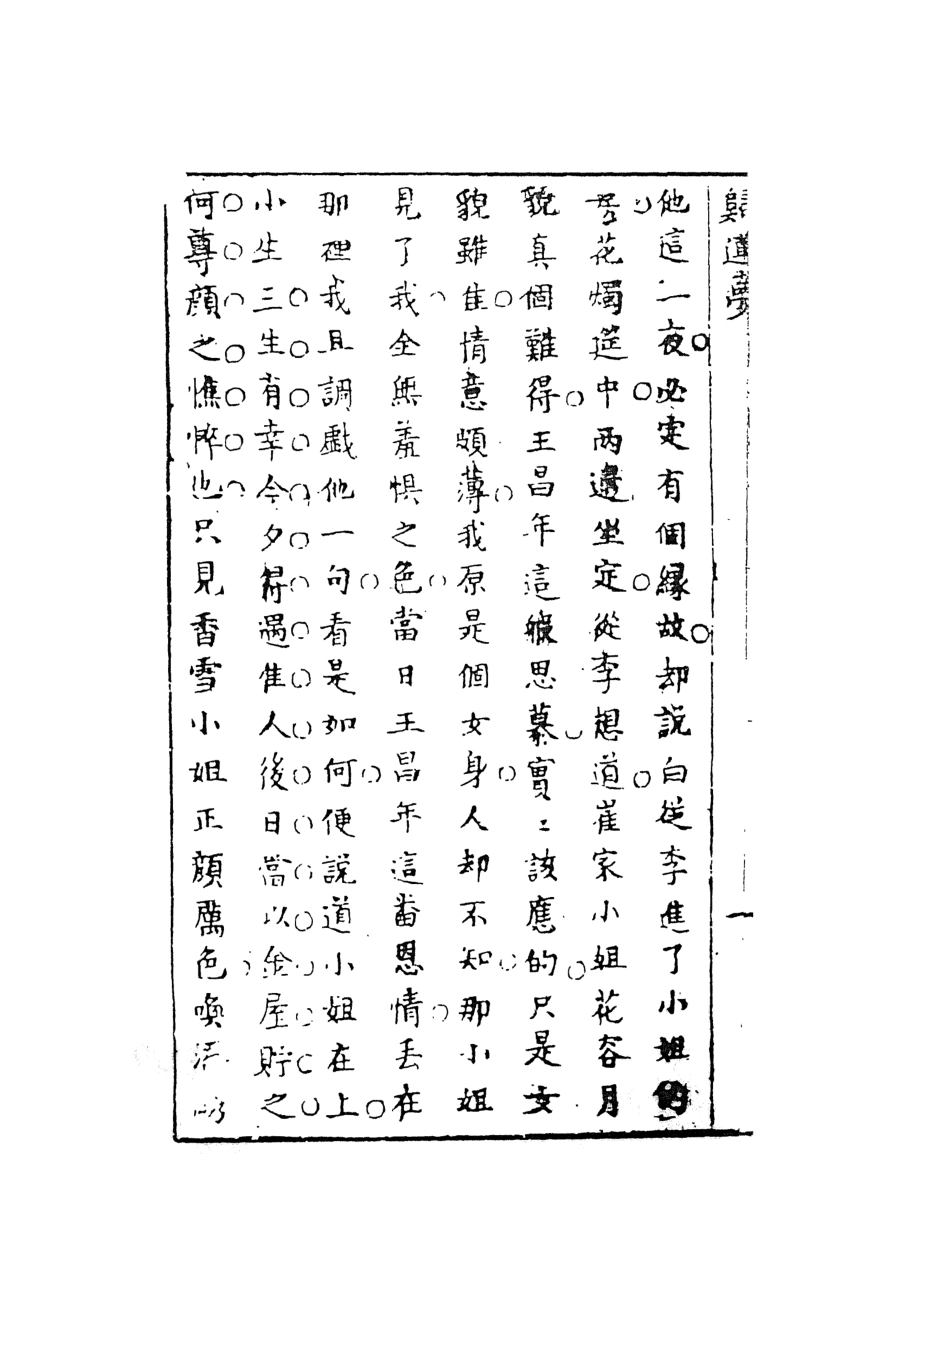 歸蓮夢
他這一夜必定有個緣故却說白從李進了小姐的
房花燭筵中兩邊坐定從李想道崔家小姐花容月
貌真個難得王昌年這般思慕實〻該應的只是女
貌雖佳情意頗薄我原是個女身人却不知那小姐
見了我全無羞惧之色當日王昌年這番恩情丢在
那裡我且調戯他一句看是如何便說道小姐在上
小生三生有幸今夕得遇佳人後日當以金屋貯之
何尊顔之憔悴也只見香雪小姐正顔厲色喚